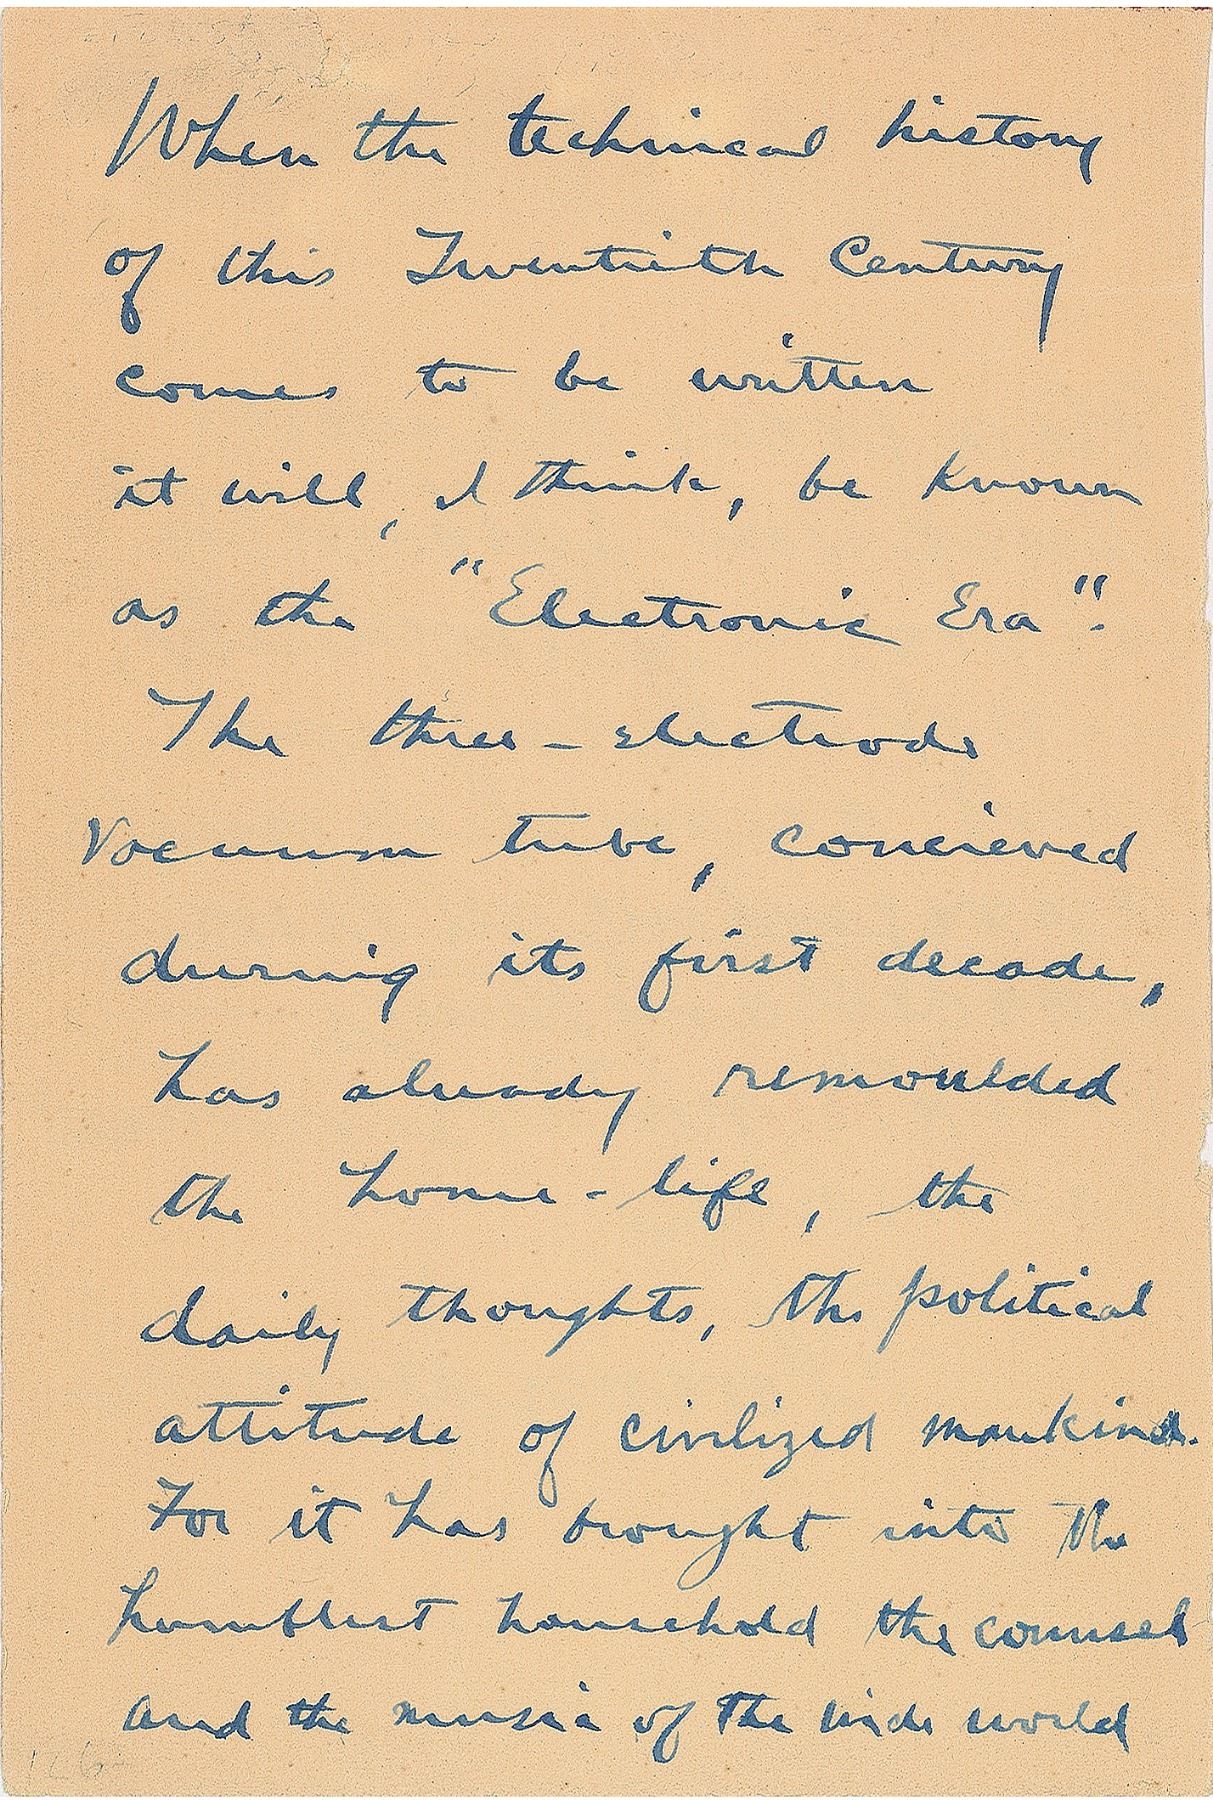 When the technical history
of this Twentieth Century
comes to be written
it will, I think, be known
as the "Electronic Era".
The three-electrode
Vacuum tube, concieved
during its first decade,
has already remoulded
the home-life, the
daily thoughts, the political
attitude of civilized mankind.
For it has brought into the
humblest household the counsel
and the music of the wide world